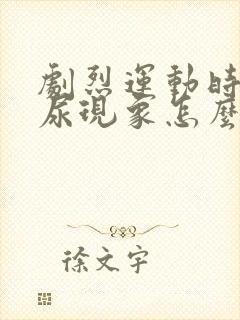 劇烈運動時
尿現象怎麼
徐文宇